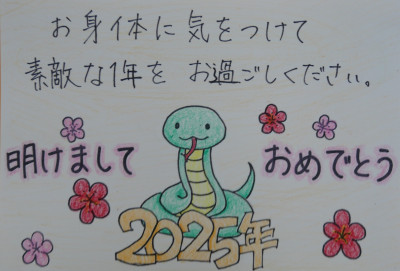 お身体に気をつけて
素敵な1年をお過ごしください。
明けまして
おめでとう
2025年